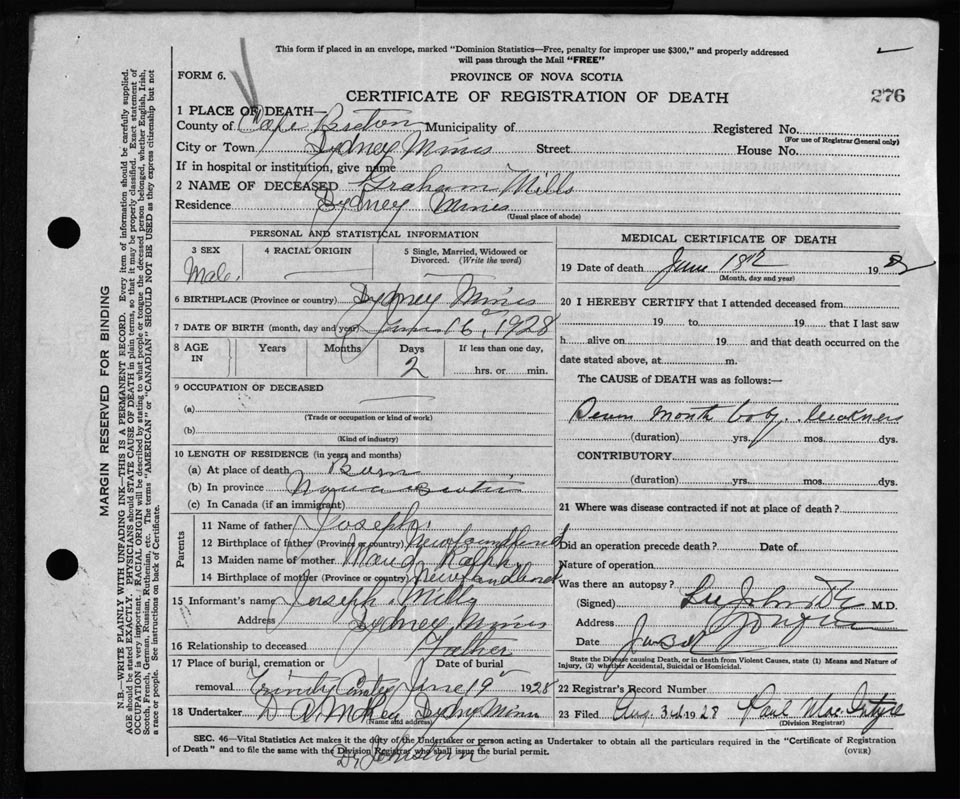 This form if placed in an envelope, marked "Dominion Statistics—Free, penalty for improper use $300," and properly addressed
will pass through the Mail "FREE"
FORM 6.
PROVINCE OF NOVA SCOTIA
CERTIFICATE OF REGISTRATION OF DEATH
276
1 PLACE OF DEATH—
County of Cape Breton Municipality of Registered No.
(For use of Registrar General only)
City or Town Sydney Mines Street House No.
If in hospital or institution, give name
2 NAME OF DECEASED Graham Mills
Residence Sydney Mines
(Usual place of abode)
PERSONAL AND STATISTICAL INFORMATION
3 SEX 4 RACIAL ORIGIN 5 Single, Married, Widowed or
Divorced. (Write the word)
Male
6 BIRTHPLACE (Province or country) Sydney Mines
7 DATE OF BIRTH (month, day and year) June 16, 1928
8 AGE IN Years Months Days If less than one day,
2 hrs. or min.
9 OCCUPATION OF DECEASED
(a)
(Trade or occupation or kind of work)
(b)
(Kind of industry)
10 LENGTH OF RESIDENCE (in years and months)
(a) At place of death Born
(b) In province Nova Scotia
(c) In Canada (if an immigrant)
Parents
11 Name of father Joseph
12 Birthplace of father (Province or country) Newfoundland
13 Maiden name of mother Maud Ralph
14 Birthplace of mother (Province or country) Newfoundland
15 Informant's name Joseph Mills
Address Sydney Mines
16 Relationship to deceased Father
17 Place of burial, cremation or Date of burial
removal Trinity June 19 1928
18 Undertaker Sydney Mines
(Name and address)
MEDICAL CERTIFICATE OF DEATH
19 Date of death June 18th 19
(Month, day and year)
20 I HEREBY CERTIFY that I attended deceased from
19 to 19 that I last saw
h alive on 19 and that death occurred on the
date stated above, at m.
The CAUSE of DEATH was as follows:—
Seven month baby. Weakness
(duration) yrs. mos. dys.
CONTRIBUTORY
(duration) yrs. mos. dys.
21 Where was disease contracted if not at place of death?
Did an operation precede death? Date of
Nature of operation
Was there an autopsy?
(Signed) M.D.
Address
Date
State the Disease causing Death, or in death from Violent Causes, state (1) Means and Nature of
Injury, (2) whether Accidental, Suicidal or Homicidal.
22 Registrar's Record Number
23 Filed Aug. 3rd 1928 Paul MacIntyre
(Division Registrar)
SEC. 46—Vital Statistics Act makes it the duty of the Undertaker or person acting as Undertaker to obtain all the particulars required in the "Certificate of Registration
of Death" and to file the same with the Division Registrar who shall issue the burial permit. (OVER)
MARGIN RESERVED FOR BINDING
N.B.—WRITE PLAINLY WITH UNFADING INK—THIS IS A PERMANENT RECORD. Every item of information should be carefully supplied.
AGE should be stated EXACTLY. PHYSICIANS should STATE CAUSE OF DEATH in plain terms, so that it may be properly classified. Exact statement of
OCCUPATION is very important. RACIAL ORIGIN will be described by stating to what people or tongue the deceased person belonged, whether English, Irish,
Scotch, French, German, Russian, Ruthenian, etc. The terms "AMERICAN" or "CANADIAN" SHOULD NOT BE USED as they express citizenship but not
a race or people. See instructions on back of Certificate.